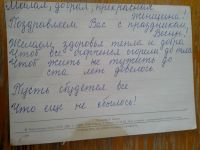 Милая, добрая, прекрасная
Женщина!
Поздравляем Вас с праздником
Весны!
Желаем здоровья тепла и добра,
Чтоб все огорченья сгорели до тла
Чтоб жить не тужить до
ста лет довелось
Пусть сбудется все
Что еще не сбылось!